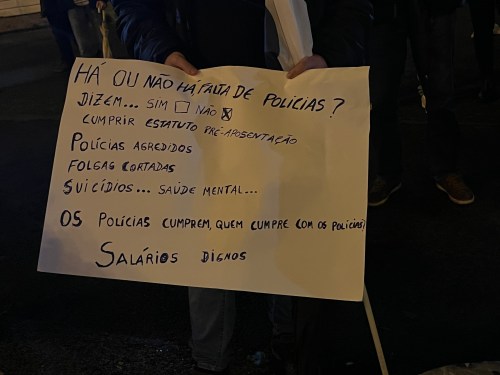 HÁ OU NÃO HÁ FALTA DE POLÍCIAS?
DIZEM... SIM ☐ NÃO ☒
CUMPRIR ESTATUTO PRÉ-APOSENTAÇÃO
POLÍCIAS AGREDIDOS
FOLGAS CORTADAS
SUICÍDIOS... SAÚDE MENTAL...
OS POLÍCIAS CUMPREM, QUEM CUMPRE COM OS POLÍCIAS?
SALÁRIOS DIGNOS